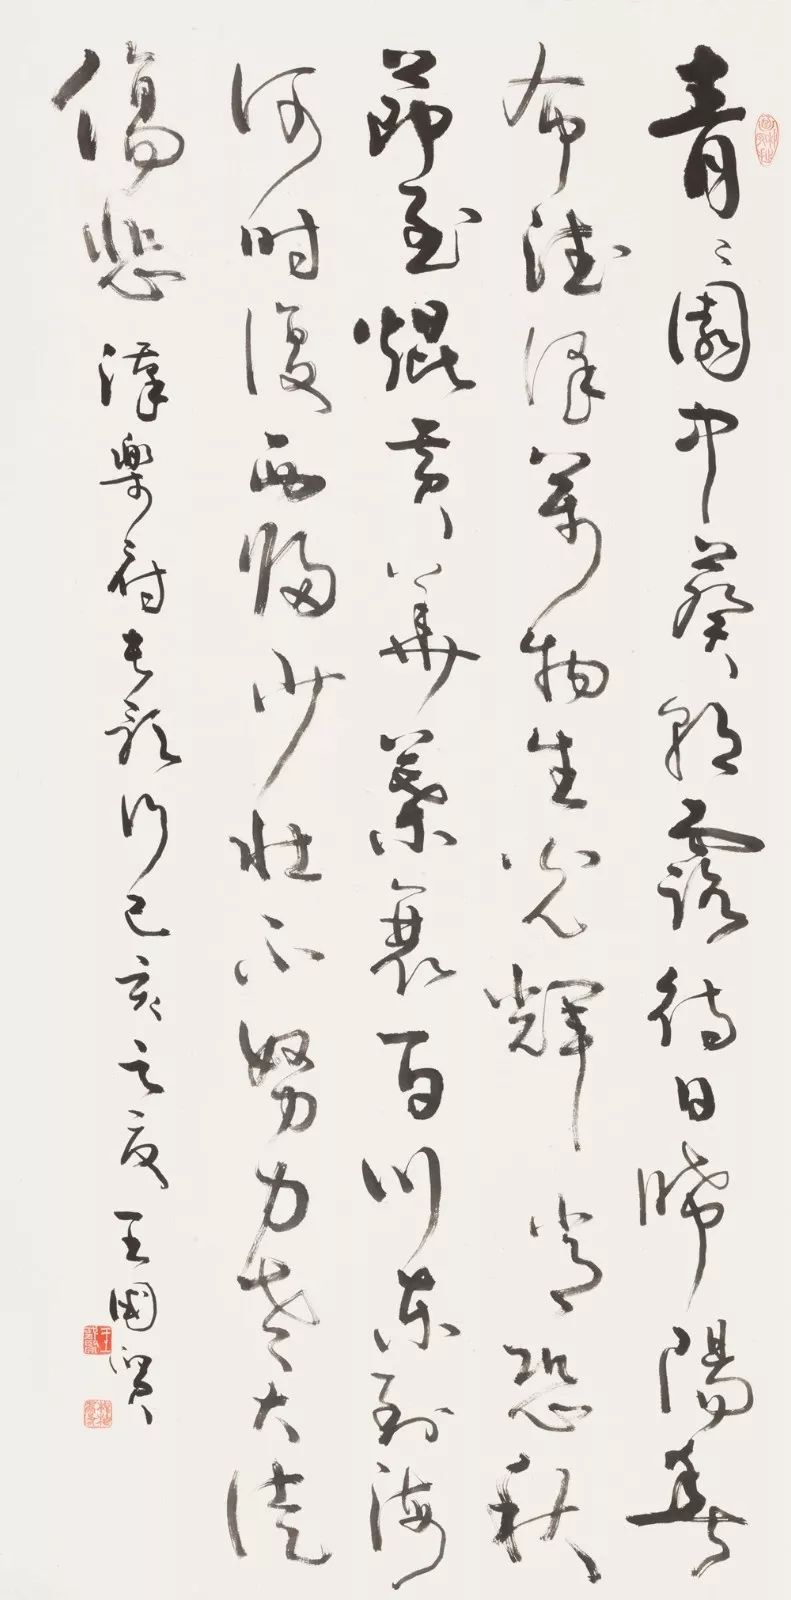 青々園中葵朝露待日晞陽春
布德澤萬物生光輝常恐秋
節至焜黄華葉衰百川東到海
何时復西歸少壯不努力老大徒
傷悲 漢樂府長歌行己亥之夏王國賢